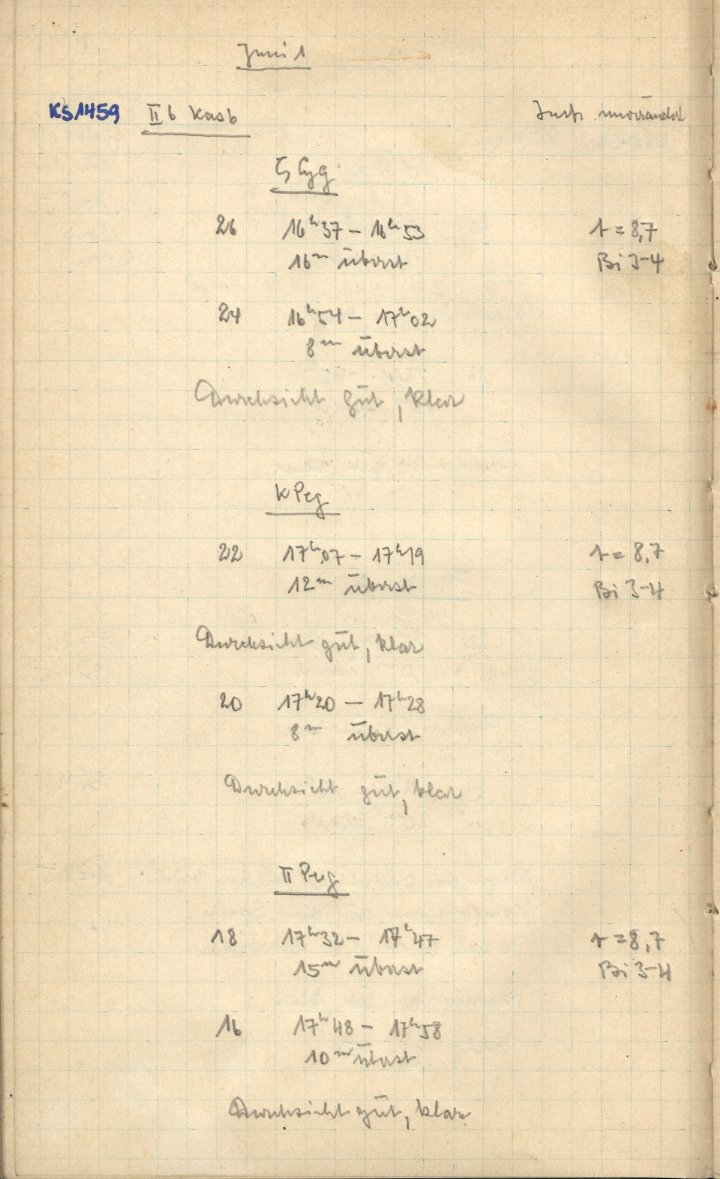 Juni 1
KS1459 II b Kasb Instr. unverändert
ζ Cyg
26 16ʰ37 – 16ʰ53 t = 8,7
16ᵐ überst Bi 3-4
24 16ʰ54 – 17ʰ02
8ᵐ überst
Durchsicht gut, klar
κ Peg
22 17ʰ07 – 17ʰ19 t = 8,7
12ᵐ überst Bi 3-4
Durchsicht gut, klar
20 17ʰ20 – 17ʰ28
8ᵐ überst
Durchsicht gut, klar
π Peg
18 17ʰ32 – 17ʰ47 t = 8,7
15ᵐ überst Bi 3-4
16 17ʰ48 – 17ʰ58
10ᵐ überst
Durchsicht gut, klar